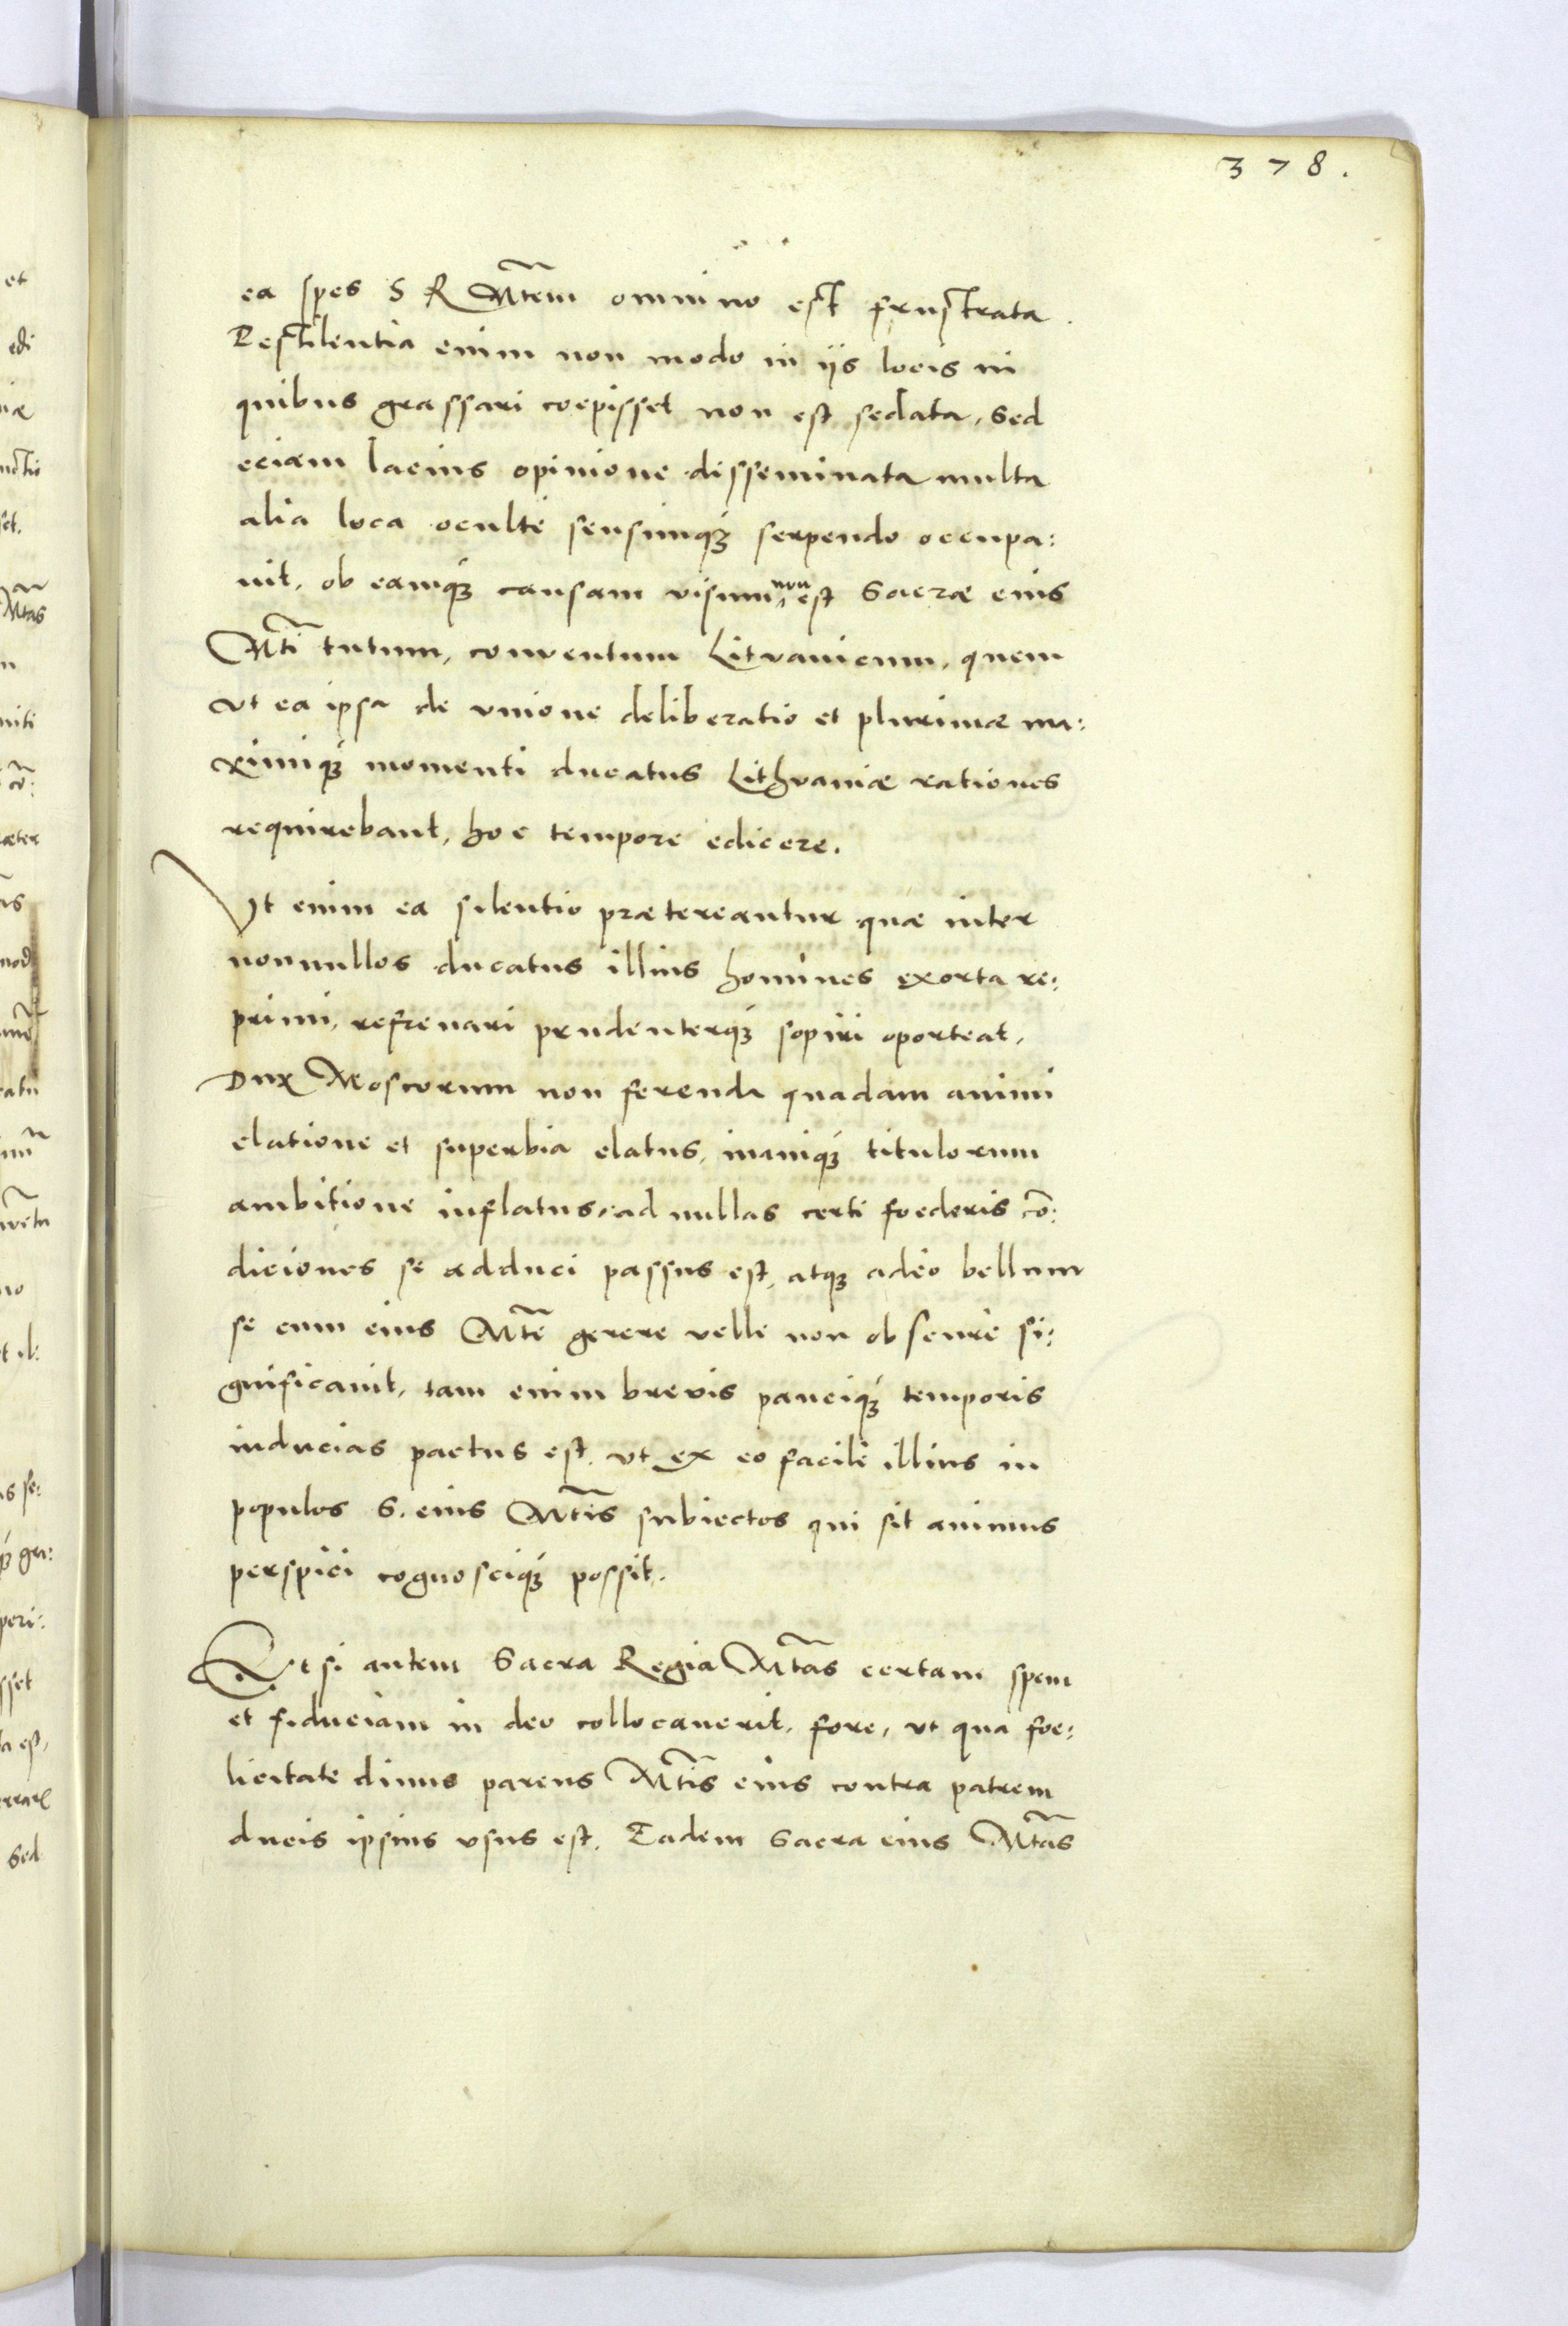 378.
ea spes S R Mtem omnino est frustrata.
Pestilentia enim non modo in ijs locis in
quibus grassari coepisset non est sedata, sed
eciam lacius opinione disseminata multa
alia loca oculte sensimq́ꝫ serpendo occupa:
uit, ob eamq́ꝫ causam visum non est Sacræ eius
Mti tutum, conventum Litvanicum, quem
vt ea ipsa de vnione deliberatio et plurimæ ma:
ximiq́ꝫ momenti ducatus Lithvaniæ rationes
requirebant, hoc tempore edicere.
Vt enim ea silentio prætereantur quæ inter
nonnullos ducatus illius homines exorta re:
primi, refrenari prudenterq́ꝫ sopiri oporteat,
Dux Moscorum non ferenda quadam animi
elatione et superbia elatus, inaniq́ꝫ titulorum
ambitione inflatus, ad nullas certi foederis cō:
diciones se adduci passus est, atqꝫ adeo bellum
se cum eius Mte gerere velle non obscurè si:
gnificauit, tam enim brevis pauciq́ꝫ temporis
inducias pactus est, vt ex eo facile illius in
populos S. eius Mtis subiectos qui sit animus
perspici cognosciq́ꝫ possit.
Et si autem Sacra Regia Mtas certam spem
et fiduciam in deo collocauerit, fore, vt qua foe:
licitate diuus parens Mtis eius contra patrem
ducis ipsius vsus est, Eadem Sacra eius Mtas